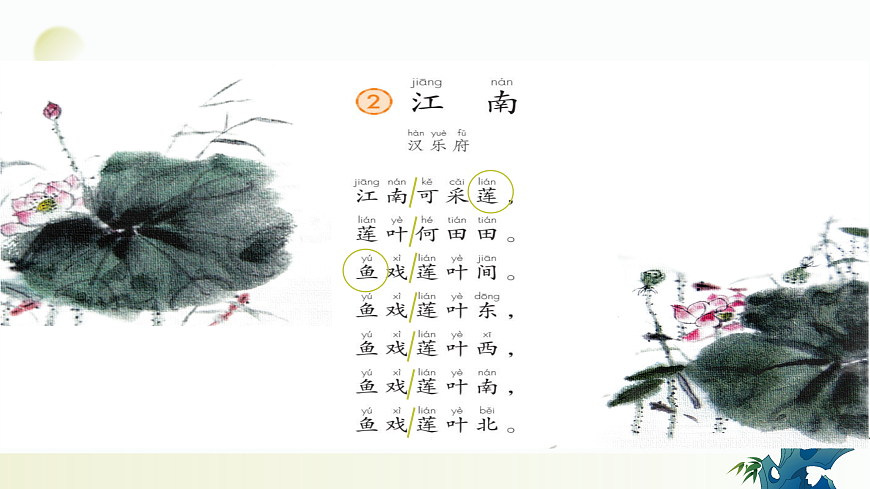 jiāng nán
2 江 南
hàn yuè fǔ
汉 乐 府
jiāng nán kě cǎi lián
江 南 可 采 莲，
lián yè hé tián tián
莲 叶 何 田 田。
yú xì lián yè jiān
鱼 戏 莲 叶 间。
yú xì lián yè dōng
鱼 戏 莲 叶 东，
yú xì lián yè xī
鱼 戏 莲 叶 西，
yú xì lián yè nán
鱼 戏 莲 叶 南，
yú xì lián yè běi
鱼 戏 莲 叶 北。